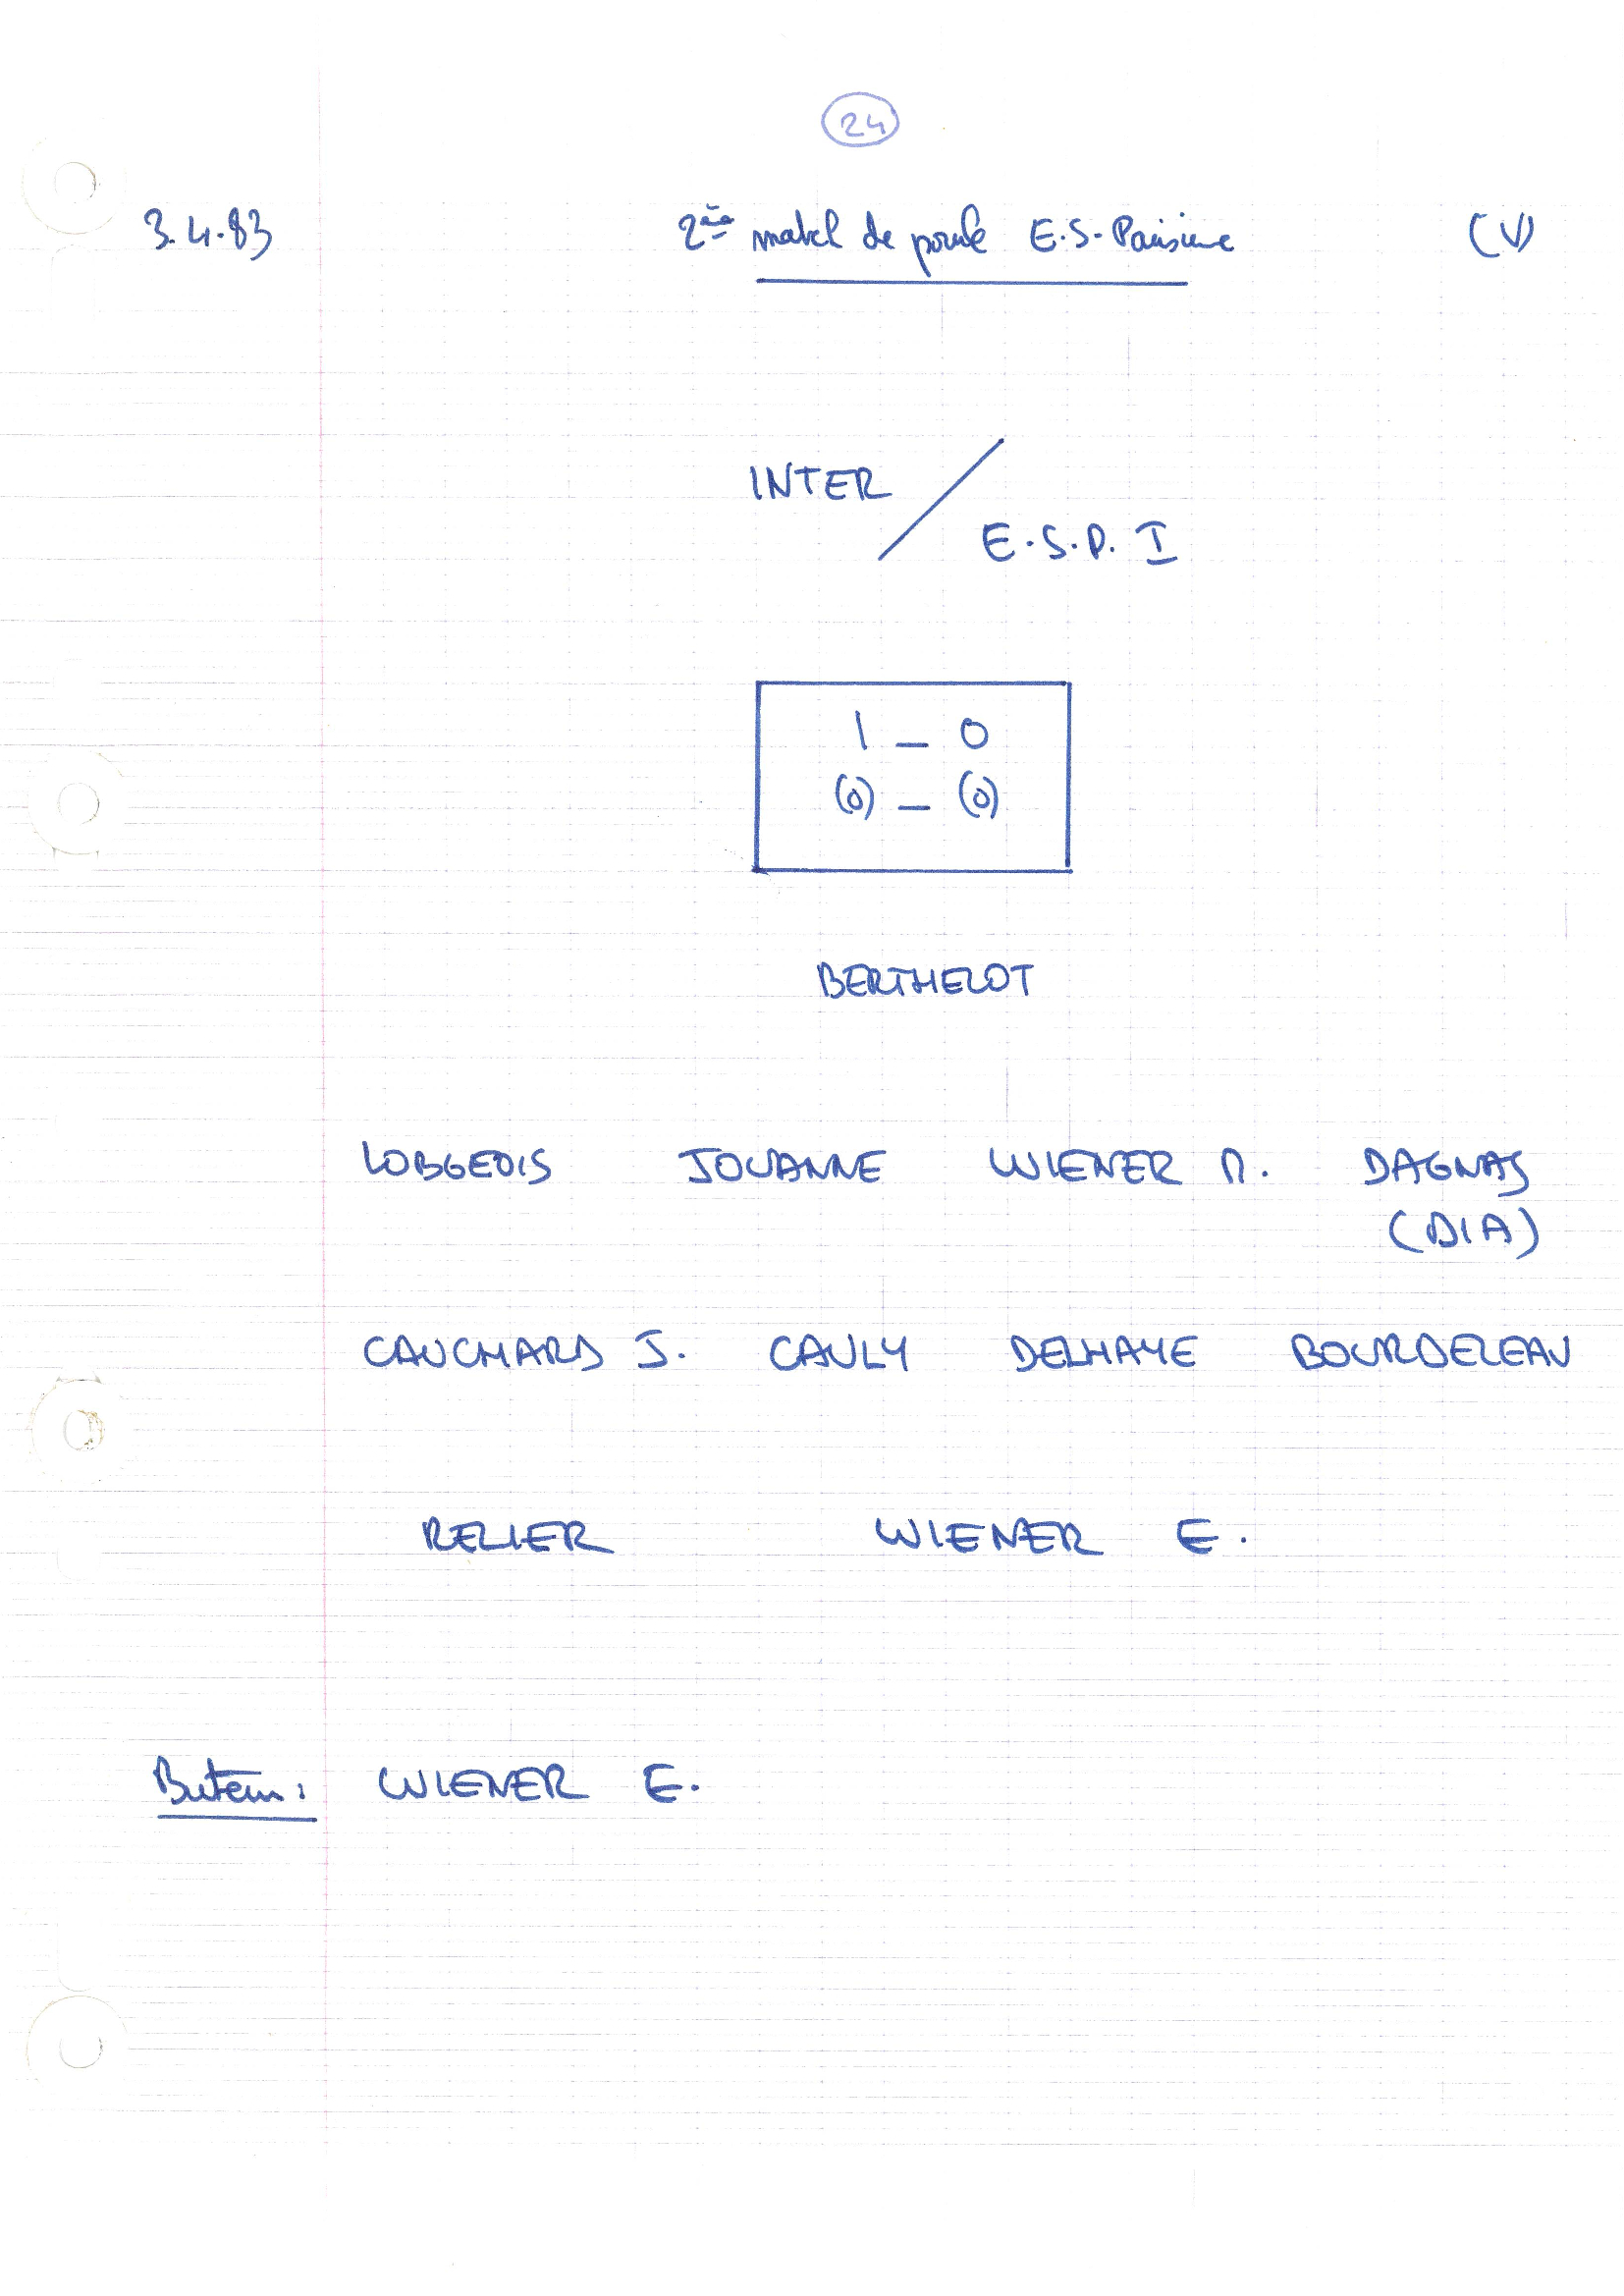 24
3.4.83 2ème match de poule E.S. Parisienne (V)
INTER /
E.S.P. I
1 _ 0
(0) _ (0)
BERTHELOT
LOBGEOIS JOUANNE WIENER M. DAGNAS
(DIA)
CAUCHARD J. CAULY DELHAYE BOURDELEAU
RELIER WIENER E.
Buteur: WIENER E.